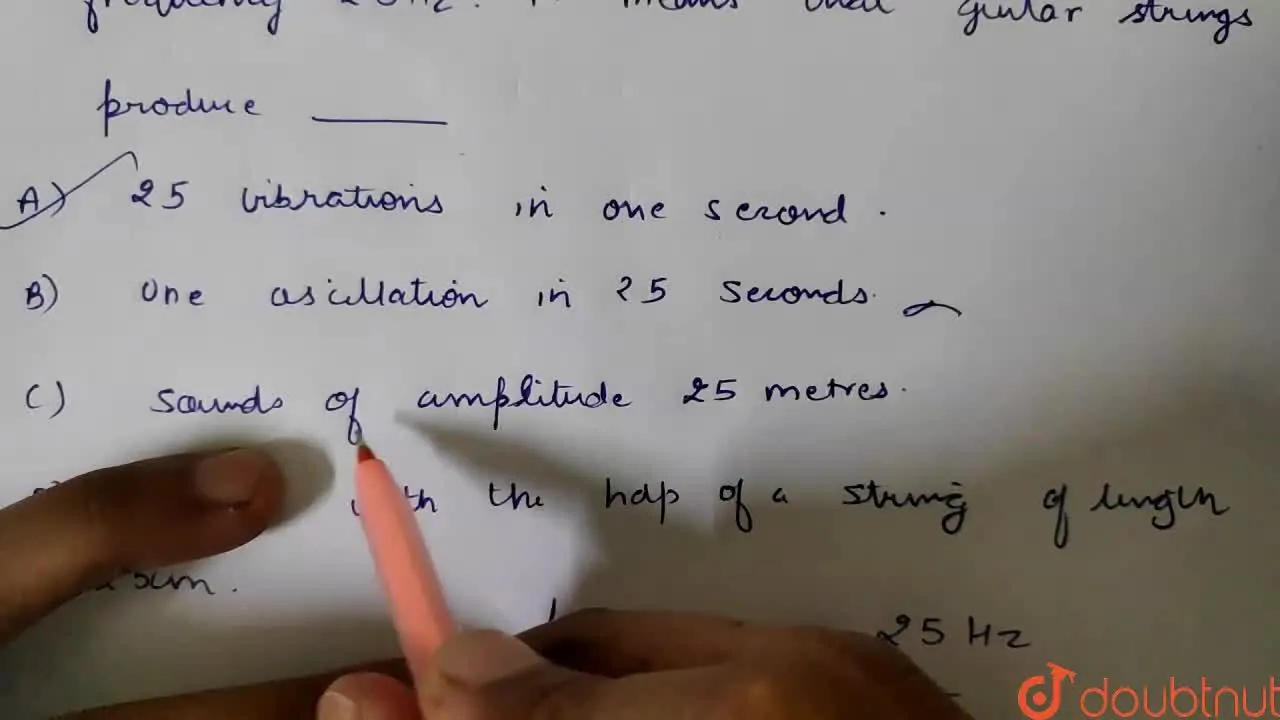 frequency 25 Hz. means that guitar strings
produce ______
A) 25 vibrations in one second.
B) One oscillation in 25 seconds.
C) Sounds of amplitude 25 metres.
with the help of a string of length
25cm.
25 Hz
doubtnut